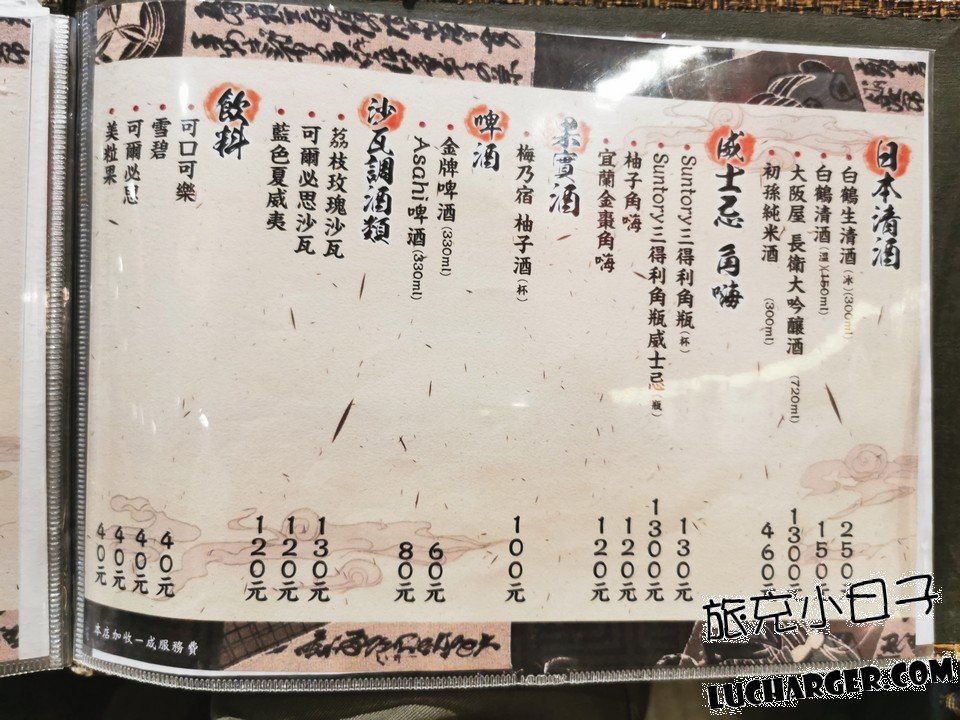 日本清酒
白鶴生清酒(冰)(300ml) 250
白鶴清酒(溫)(150ml) 150元
大阪屋 長衛大吟釀酒(720ml) 1300元
初孫純米酒(300ml) 460元
威士忌 角嗨
Suntory三得利角瓶(杯) 130元
Suntory三得利角瓶威士忌(瓶) 1300元
柚子角嗨 120元
宜蘭金棗角嗨 120元
果實酒
梅乃宿 柚子酒(杯) 100元
啤酒
金牌啤酒(330ml) 60元
Asahi啤酒(330ml) 80元
沙瓦調酒類
荔枝玫瑰沙瓦 130元
可爾必思沙瓦 120元
藍色夏威夷 120元
飲料
可口可樂 40元
雪碧 40元
可爾必思 40元
美粒果 40元
本店加收一成服務費
旅充小日子
LUCHARGER.COM